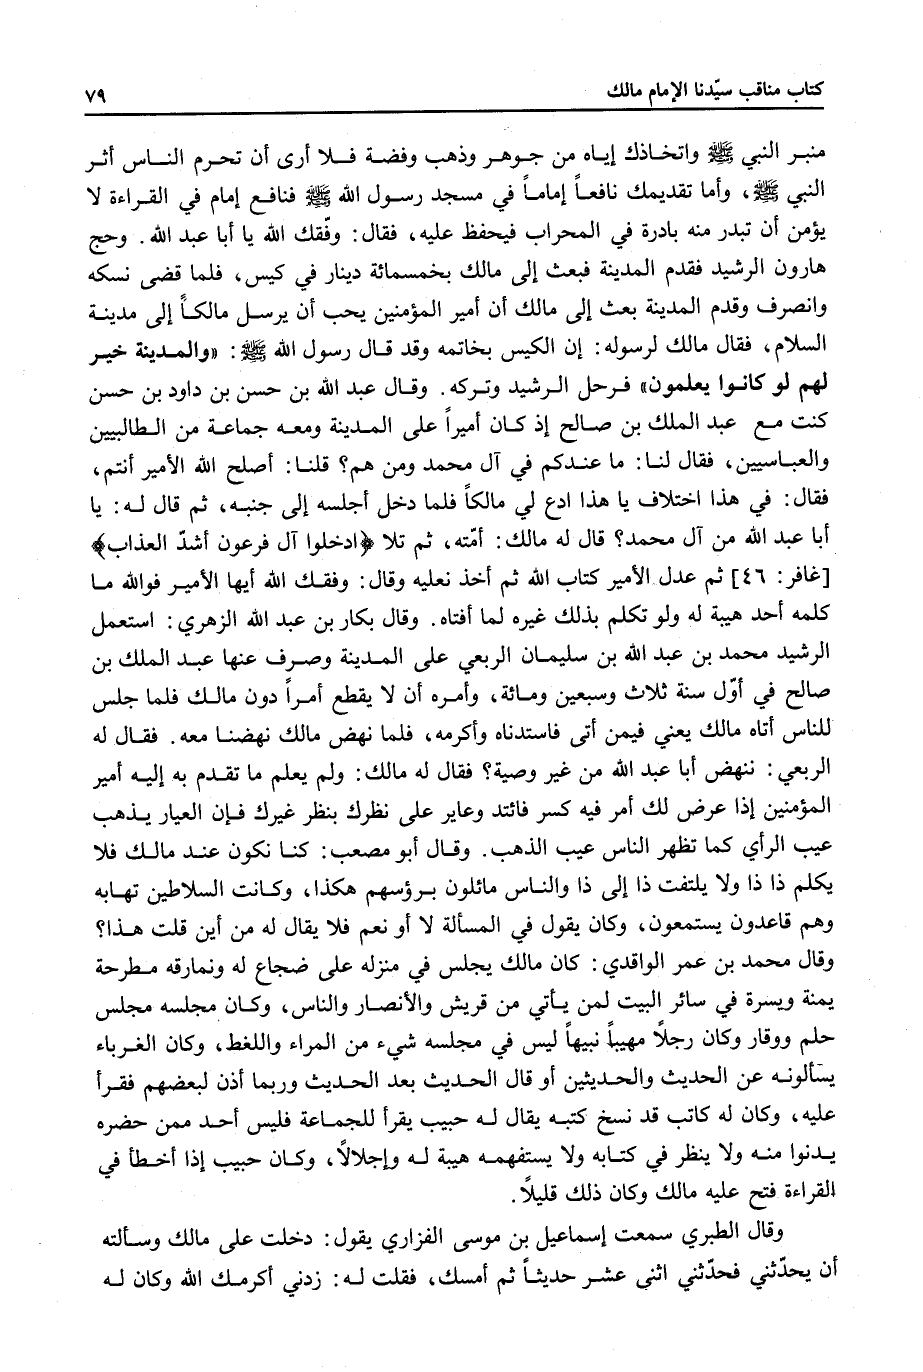 كتاب مناقب سيّدنا الإمام مالك ٧٩
منبر النبي ﷺ واتخاذك إياه من جوهر وذهب وفضة فلا أرى أن تحرم الناس أثر
النبي ﷺ، وأما تقديمك نافعاً إماماً في مسجد رسول الله ﷺ فنافع إمام في القراءة لا
يؤمن أن تبدر منه بادرة في المحراب فيحفظ عليه، فقال: وفّقك الله يا أبا عبد الله. وحج
هارون الرشيد فقدم المدينة فبعث إلى مالك بخمسمائة دينار في كيس، فلما قضى نسكه
وانصرف وقدم المدينة بعث إلى مالك أن أمير المؤمنين يحب أن يرسل مالكاً إلى مدينة
السلام، فقال مالك لرسوله: إن الكيس بخاتمه وقد قال رسول الله ﷺ: «والمدينة خير
لهم لو كانوا يعلمون» فرحل الرشيد وتركه. وقال عبد الله بن حسن بن داود بن حسن
كنت مع عبد الملك بن صالح إذ كان أميراً على المدينة ومعه جماعة من الطالبيين
والعباسيين، فقال لنا: ما عندكم في آل محمد ومن هم؟ قلنا: أصلح الله الأمير أنتم،
فقال: في هذا اختلاف يا هذا ادع لي مالكاً فلما دخل أجلسه إلى جنبه، ثم قال له: يا
أبا عبد الله من آل محمد؟ قال له مالك: أمّته، ثم تلا ﴿ادخلوا آل فرعون أشدّ العذاب﴾
[غافر: ٤٦] ثم عدل الأمير كتاب الله ثم أخذ نعليه وقال: وفقك الله أيها الأمير فوالله ما
كلمه أحد هيبة له ولو تكلم بذلك غيره لما أفتاه. وقال بكار بن عبد الله الزهري: استعمل
الرشيد محمد بن عبد الله بن سليمان الربعي على المدينة وصرف عنها عبد الملك بن
صالح في أوّل سنة ثلاث وسبعين ومائة، وأمره أن لا يقطع أمراً دون مالك فلما جلس
للناس أتاه مالك يعني فيمن أتى فاستدناه وأكرمه، فلما نهض مالك نهضنا معه. فقال له
الربعي: ننهض أبا عبد الله من غير وصية؟ فقال له مالك: ولم يعلم ما تقدم به إليه أمير
المؤمنين إذا عرض لك أمر فيه كسر فائتد وعاير على نظرك بنظر غيرك فإن العيار يذهب
عيب الرأي كما تظهر الناس عيب الذهب. وقال أبو مصعب: كنا نكون عند مالك فلا
يكلم ذا ذا ولا يلتفت ذا إلى ذا والناس مائلون برؤسهم هكذا، وكانت السلاطين تهابه
وهم قاعدون يستمعون، وكان يقول في المسألة لا أو نعم فلا يقال له من أين قلت هذا؟
وقال محمد بن عمر الواقدي: كان مالك يجلس في منزله على ضجاع له ونمارقه مطرحة
يمنة ويسرة في سائر البيت لمن يأتي من قريش والأنصار والناس، وكان مجلسه مجلس
حلم ووقار وكان رجلاً مهيباً نبيهاً ليس في مجلسه شيء من المراء واللغط، وكان الغرباء
يسألونه عن الحديث والحديثين أو قال الحديث بعد الحديث وربما أذن لبعضهم فقرأ
عليه، وكان له كاتب قد نسخ كتبه يقال له حبيب يقرأ للجماعة فليس أحد ممن حضره
يدنوا منه ولا ينظر في كتابه ولا يستفهمه هيبة له وإجلالاً، وكان حبيب إذا أخطأ في
القراءة فتح عليه مالك وكان ذلك قليلاً.
وقال الطبري سمعت إسماعيل بن موسى الفزاري يقول: دخلت على مالك وسألته
أن يحدّثني فحدّثني اثنى عشر حديثاً ثم أمسك، فقلت له: زدني أكرمك الله وكان له